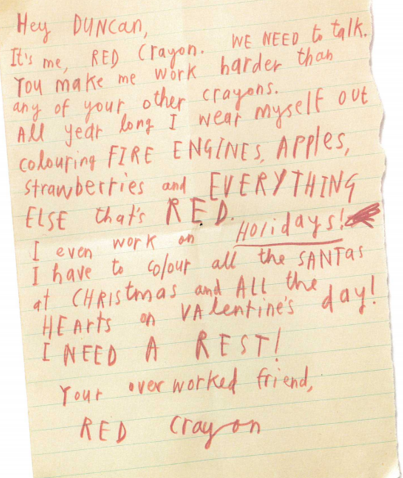 Hey DUNCAN,
It's me, RED Crayon. WE NEED to talk.
You make me work harder than
any of your other crayons.
All year long I wear myself out
colouring FIRE ENGINES, APPles,
strawberries and EVERYTHING
ELSE that's RED.
I even work on Holidays!
I have to colour all the SANTAS
at CHRistmas and ALL the
HEArts on VAlentine's day!
I NEED A REST!
Your overworked friend,
RED Crayon